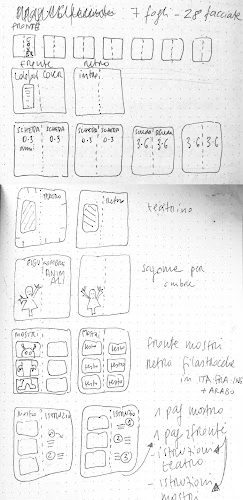 7 fogli - 28 facciate
FRONTE
fronte retro
COVER intro
SCHEDA SCHEDA SCHEDA SCHEDA SCHEDA SCHEDA
0-3 0-3 0-3 0-3 3-6 3-6 3-6 3-6
retro teatrino
sagome per
ombre
ANIM
ALI
MOSTRI fronte mostri
retro filastrocche
in ITA FRA ING
+ ARABO
testo testo
testo testo
testo testo
mostro ISTRUZIO 1 pag mostro
1 pag
- istruzioni
teatro
- istruzioni
mostri